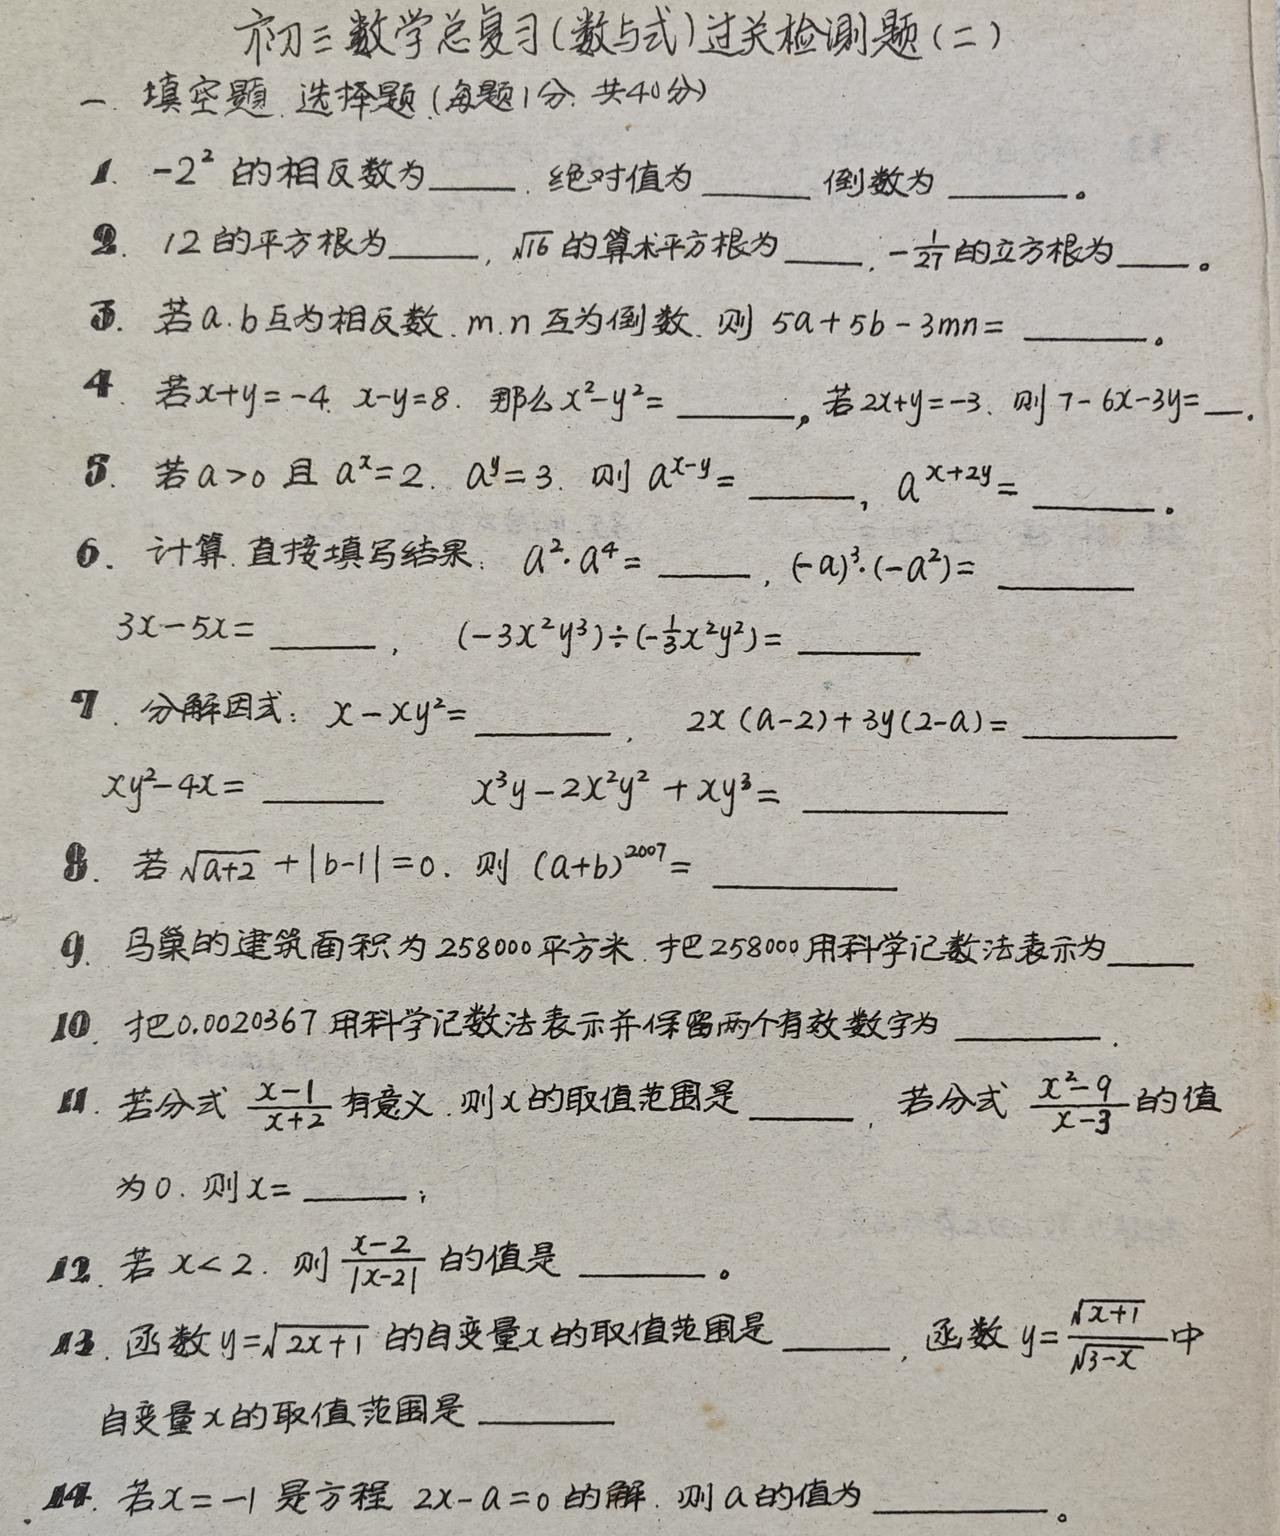 初三数学总复习(数与式)过关检测题(二)
一. 填空题.选择题.(每题1分.共40分)
1. -2² 的相反数为____. 绝对值为____ 倒数为____。
2. 12的平方根为____, √16 的算术平方根为____. -1/27 的立方根为____。
3. 若a.b互为相反数.m.n互为倒数.则 5a+5b-3mn=____。
4. 若x+y=-4. x-y=8. 那么x²-y²=____, 若2x+y=-3. 则7-6x-3y=__.
5. 若a>0 且 aˣ=2. aʸ=3. 则 a^(x-y)=____, a^(x+2y)=____.
6. 计算.直接填写结果: a²·a⁴=____, (-a)³·(-a²)=____
3x-5x=____, (-3x²y³)÷(-1/3x²y²)=____
7. 分解因式: x-xy²=____, 2x(a-2)+3y(2-a)=____
xy²-4x=____ x³y-2x²y²+xy³=____
8. 若√(a+2)+|b-1|=0. 则 (a+b)²⁰⁰⁷=____
9. 鸟巢的建筑面积为258000平方米.把258000用科学记数法表示为____
10. 把0.0020367用科学记数法表示并保留两个有效数字为____.
11. 若分式 (x-1)/(x+2) 有意义.则x的取值范围是____, 若分式 (x²-9)/(x-3) 的值
为0. 则x=____;
12. 若 x<2. 则 (x-2)/|x-2| 的值是____。
13. 函数y=√(2x+1) 的自变量x的取值范围是____, 函数 y=√(x+1)/√(3-x) 中
自变量x的取值范围是____
14. 若x=-1 是方程 2x-a=0 的解.则a的值为____。